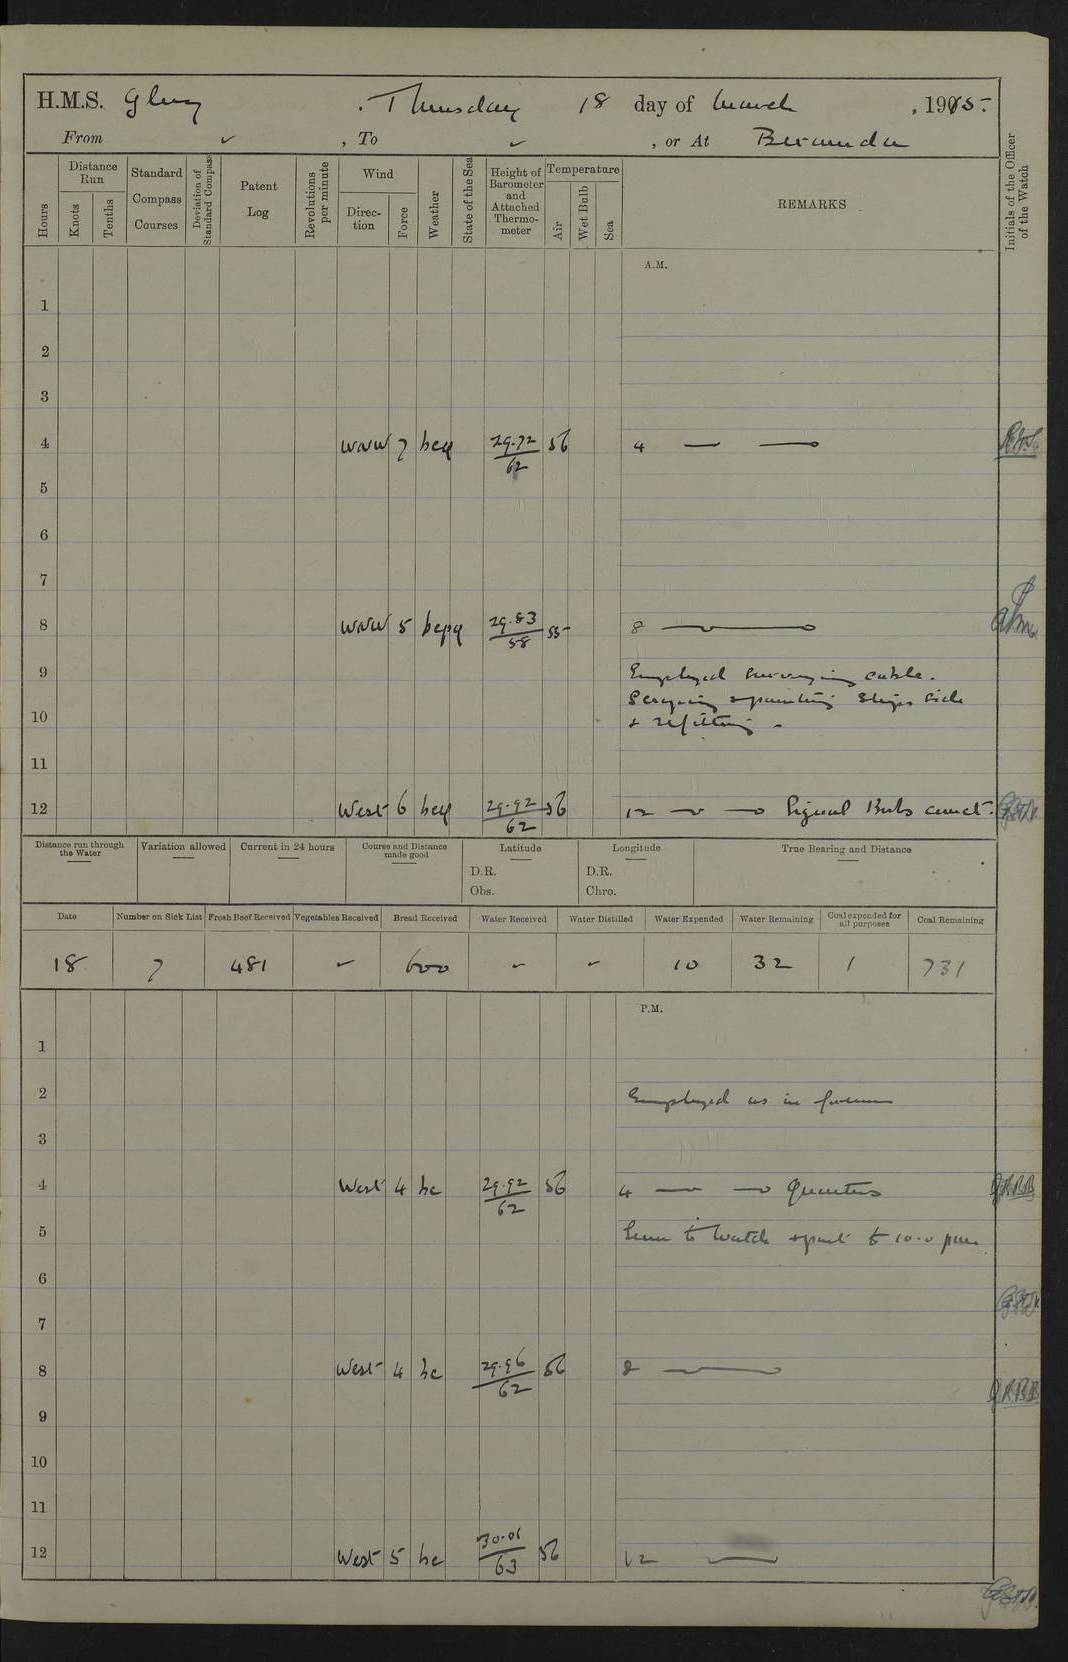 H.M.S. Glory , Thursday 18 day of March , 1915.
From ✓ , To ✓ , or At Bermuda
Hours
Distance Run
Knots
Tenths
Standard Compass Courses
Deviation of Standard Compass
Patent Log
Revolutions per minute
Wind
Direction
Force
Weather
State of the Sea
Height of Barometer and Attached Thermometer
Temperature
Air
Wet Bulb
Sea
REMARKS
Initials of the Officer of the Watch
A.M.
1
2
3
4 WNW 7 bcq 29.72/62 56 4
5
6
7
8 WNW 5 bcpq 29.83/58 55 8
9 Employed surveying cable.
Scraping & painting Ships side
10 & refitting.
11
12 West 6 bcq 29.92/62 56 12 Signal Bks correct.
Distance run through the Water
Variation allowed
Current in 24 hours
Course and Distance made good
Latitude
D.R.
Obs.
Longitude
D.R.
Chro.
True Bearing and Distance
Date Number on Sick List Fresh Beef Received Vegetables Received Bread Received Water Received Water Distilled Water Expended Water Remaining Coal expended for all purposes Coal Remaining
18 7 481 ✓ 600 ✓ ✓ 10 32 1 731
P.M.
1
2 Employed as in forenoon
3
4 West 4 bc 29.92/62 56 4 Quarters
5 Leave to Watch & part to 10.0 pm
6
7
8 West 4 bc 29.96/62 56 8
9
10
11
12 West 5 bc 30.01/63 56 12